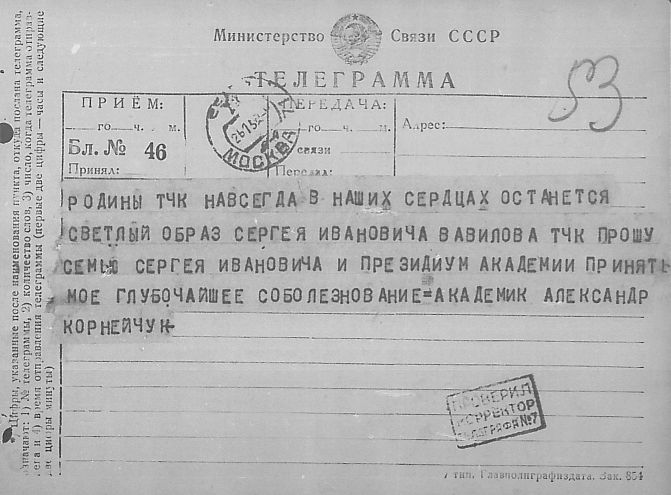 Министерство Связи СССР
ТЕЛЕГРАММА
53
ПРИЁМ:
го ч. м.
Бл. № 46
Принял:
ПЕРЕДАЧА:
го ч. м.
связи
Передал:
Адрес:
МОСКВА
РОДИНЫ ТЧК НАВСЕГДА В НАШИХ СЕРДЦАХ ОСТАНЕТСЯ
СВЕТЛЫЙ ОБРАЗ СЕРГЕЯ ИВАНОВИЧА ВАВИЛОВА ТЧК ПРОШУ
СЕМЬЮ СЕРГЕЯ ИВАНОВИЧА И ПРЕЗИДИУМ АКАДЕМИИ ПРИНЯТЬ
МОЕ ГЛУБОЧАЙШЕЕ СОБОЛЕЗНОВАНИЕ=АКАДЕМИК АЛЕКСАНДР
КОРНЕЙЧУК-
ПРОВЕРИЛ
КОРРЕКТОР
ТЕЛЕГРАФА №7
тип. Главполиграфиздата. Зак. 854
Цифры, указанные после наименования пункта, откуда послана телеграмма,
означают: 1) № телеграммы, 2) количество слов, 3) число, когда телеграмма отправ-
лена и 4) время отправления телеграммы (первые две цифры — часы и следующие
две цифры минуты)